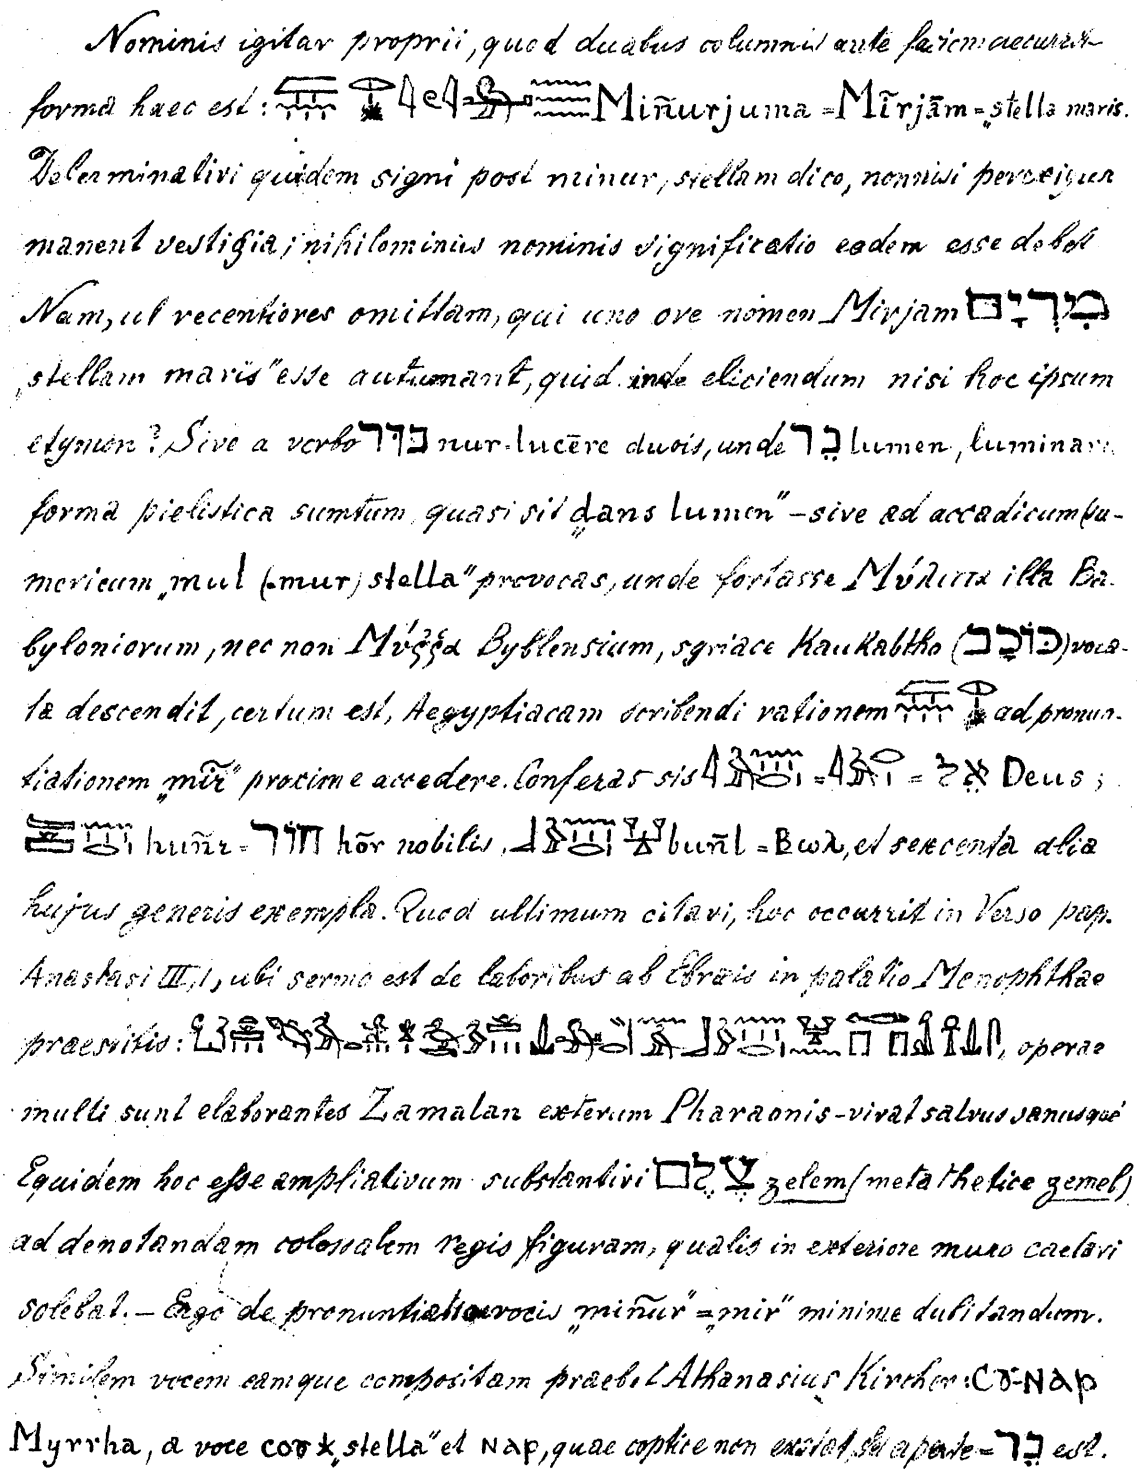 Nominis igitur proprii, quod duabus columnis ante faciem
forma haec est: Miñurjuma = Mīrjām = „stella maris.
Determinativi quidem signi post minur, stellam dico, nonnisi perexigua
manent vestigia; nihilominus nominis significatio eadem esse debet
Nam, ut recentiores omittam, qui uno ore nomen Mirjam מִרְיָם
„stellam maris" esse autumant, quid inde eliciendum nisi hoc ipsum
etymon? Sive a verbo נוּר nur-lucēre ducis, unde נֵר lumen,
forma pielistica sumtum, quasi sit „dans lumen" – sive ad accadicum (su-
mericum „mul (=mur) stella" provocas, unde fortasse Μύλιττα illa Ba-
byloniorum, nec non Μύῤῥα Byblensium, syriace Kaukabtho (כּוֹכָב) voca-
ta descendit, certum est, Aegyptiacam scribendi rationem ad pronun-
tiationem „mīr" proxime accedere. Conferas sis = = אֵל Deus;
huñr = חוֹר hōr nobilis, buñl = Βωλ, et sexcenta alia
hujus generis exempla. Quod ultimum citavi, hoc occurrit in Verso pap.
Anastasi III,1, ubi sermo est de laboribus ab Ebraeis in palatio Menophthae
praestitis: , operae
multi sunt elaborantes Zamalan exterum Pharaonis – vivat salvus sanusque
Equidem hoc esse ampliativum substantivi צֶלֶם zelem (metathetice zemel)
ad denotandam colossalem regis figuram, qualis in exteriore muro caelari
solebat. – Ergo de pronuntiatione vocis „miñur" = „mir" minime dubitandum.
Similem vocem eamque compositam praebet Athanasius Kircher: ⲥⲟⲩ-ⲛⲁⲣ
Myrrha, a voce ⲥⲟⲩ ✶ „stella" et ⲛⲁⲣ, quae coptice non exstat, sed aperte = נֵר est.